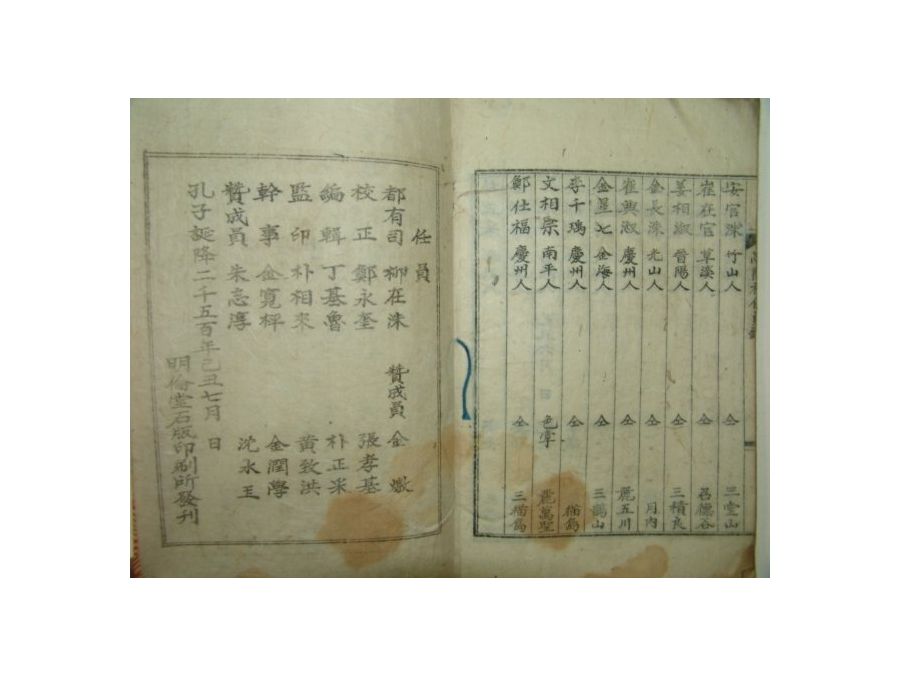 安官洙 竹山人 仝 三堂山
崔在官 草溪人 仝 召德谷
姜相淑 晉陽人 仝 三積良
金長洙 光山人 仝 月內
崔興淑 慶州人 仝 麗五川
金星七 金海人 仝 三鶴山
李千瑀 慶州人 仝 猫島
文相宗 南平人 色掌 麗萬聖
鄭仕福 慶州人 仝 三猫島
任員
都有司 柳在洙 贊成員 金𤋮
校正 鄭永奎 張孝基
編輯 丁基魯 朴正采
監印 朴相來 黃致洪
幹事 金寬枰 金潤學
贊成員 朱志淳 沈水玉
孔子誕降二千五百年己丑七月 日
明倫堂石版印刷所發刊